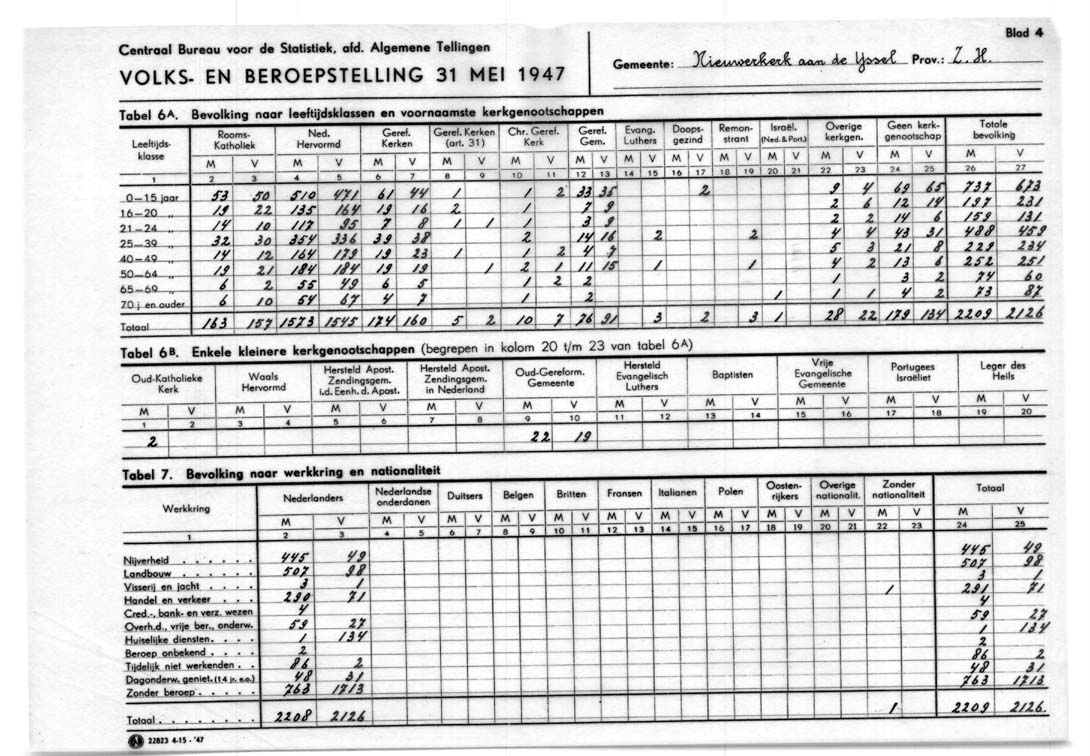 Blad 4
Centraal Bureau voor de Statistiek, afd. Algemene Tellingen
VOLKS- EN BEROEPSTELLING 31 MEI 1947
Gemeente: Nieuwerkerk aan de Yssel Prov.: Z. H.
Tabel 6A. Bevolking naar leeftijdsklassen en voornaamste kerkgenootschappen
Leeftijds-klasse | Rooms-Katholiek | Ned. Hervormd | Geref. Kerken | Geref. Kerken (art. 31) | Chr. Geref. Kerk | Geref. Gem. | Evang. Luthers | Doops-gezind | Remon-strant | Israël. (Ned. & Port.) | Overige kerkgen. | Geen kerk-genootschap | Totale bevolking
M V M V M V M V M V M V M V M V M V M V M V M V M V
1 2 3 4 5 6 7 8 9 10 11 12 13 14 15 16 17 18 19 20 21 22 23 24 25 26 27
0-15 jaar 53 50 510 471 61 44 1 1 2 33 35 2 9 4 69 65 737 673
16-20 „ 19 22 135 164 19 16 2 1 7 9 2 6 12 14 197 231
21-24 „ 14 10 117 95 7 8 1 1 1 3 9 2 2 14 6 159 131
25-39 „ 32 30 354 336 39 38 2 14 16 2 2 4 4 43 31 488 459
40-49 „ 14 12 164 179 19 23 1 1 2 4 7 5 3 21 8 229 234
50-64 „ 19 21 184 184 19 19 1 2 1 11 15 1 1 4 2 13 6 252 251
65-69 „ 6 2 55 49 6 5 1 2 2 1 3 2 74 60
70 j. en ouder 6 10 54 67 4 7 1 2 1 1 1 4 2 73 87
Totaal 163 157 1573 1545 174 160 5 2 10 7 76 91 3 2 3 1 28 22 179 134 2209 2126
Tabel 6B. Enkele kleinere kerkgenootschappen (begrepen in kolom 20 t/m 23 van tabel 6A)
Oud-Katholieke Kerk | Waals Hervormd | Hersteld Apost. Zendingsgem. i.d. Eenh. d. Apost. | Hersteld Apost. Zendingsgem. in Nederland | Oud-Gereform. Gemeente | Hersteld Evangelisch Luthers | Baptisten | Vrije Evangelische Gemeente | Portugees Israëliet | Leger des Heils
M V M V M V M V M V M V M V M V M V M V
1 2 3 4 5 6 7 8 9 10 11 12 13 14 15 16 17 18 19 20
2 22 19
Tabel 7. Bevolking naar werkkring en nationaliteit
Werkkring | Nederlanders | Nederlandse onderdanen | Duitsers | Belgen | Britten | Fransen | Italianen | Polen | Oosten-rijkers | Overige nationalit. | Zonder nationaliteit | Totaal
M V M V M V M V M V M V M V M V M V M V M V M V
1 2 3 4 5 6 7 8 9 10 11 12 13 14 15 16 17 18 19 20 21 22 23 24 25
Nijverheid . . . . . . 445 49 445 49
Landbouw . . . . . . 507 98 507 98
Visserij en jacht . . . . 3 1 3 1
Handel en verkeer . . . . 290 71 1 291 71
Cred.-, bank- en verz. wezen 4 4
Overh.d., vrije ber., onderw. 59 27 59 27
Huiselijke diensten. . . . 1 134 1 134
Beroep onbekend . . . . 2 2
Tijdelijk niet werkenden . . 86 2 86 2
Dagonderw. geniet. (14 jr. e.o.) 48 31 48 31
Zonder beroep . . . . . 763 1713 763 1713
Totaal . . . . . . . . 2208 2126 1 2209 2126.
22823 4-15 - '47